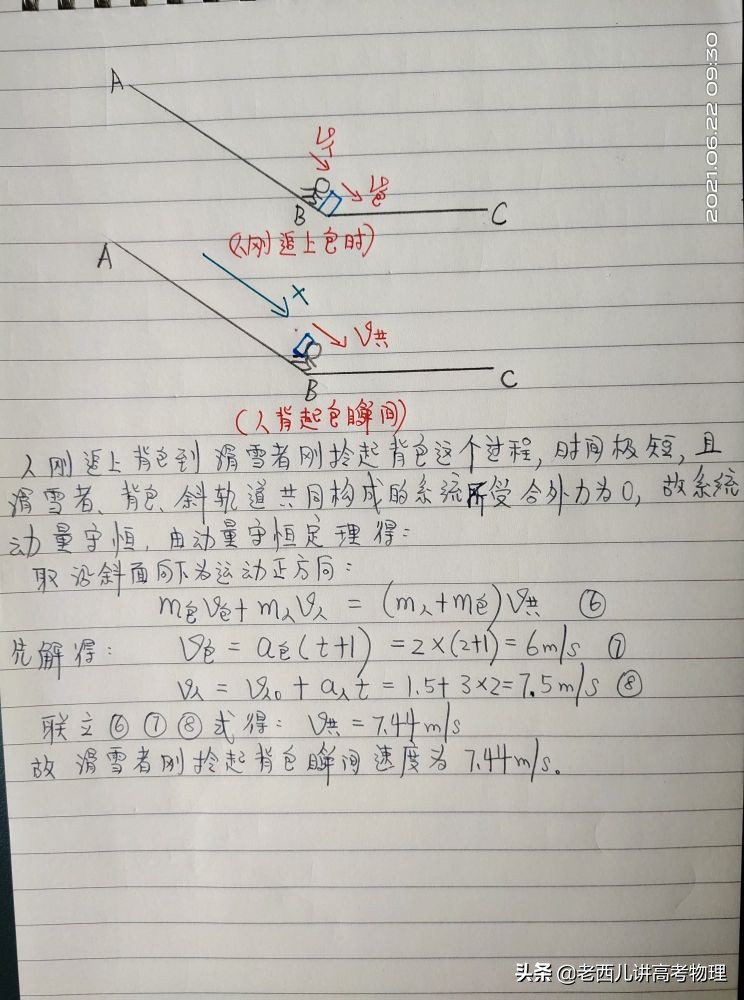 2021.06.22 09:30
A
v人
v包
B
C
(人刚追上包时)
A
x
v共
B
C
(人背起包瞬间)
人刚追上背包到滑雪者刚拎起背包这个过程,时间极短,且
滑雪者、背包、斜轨道共同构成的系统所受合外力为0,故系统
动量守恒,由动量守恒定理得:
取沿斜面向下为运动正方向:
m包v包+m人v人=(m人+m包)v共 ⑥
先解得: v包=a包(t+1)=2×(2+1)=6m/s ⑦
v人=v人0+a人t=1.5+3×2=7.5m/s ⑧
联立⑥⑦⑧式得: v共=7.44m/s
故滑雪者刚拎起背包瞬间速度为7.44m/s。
头条@老西儿讲高考物理